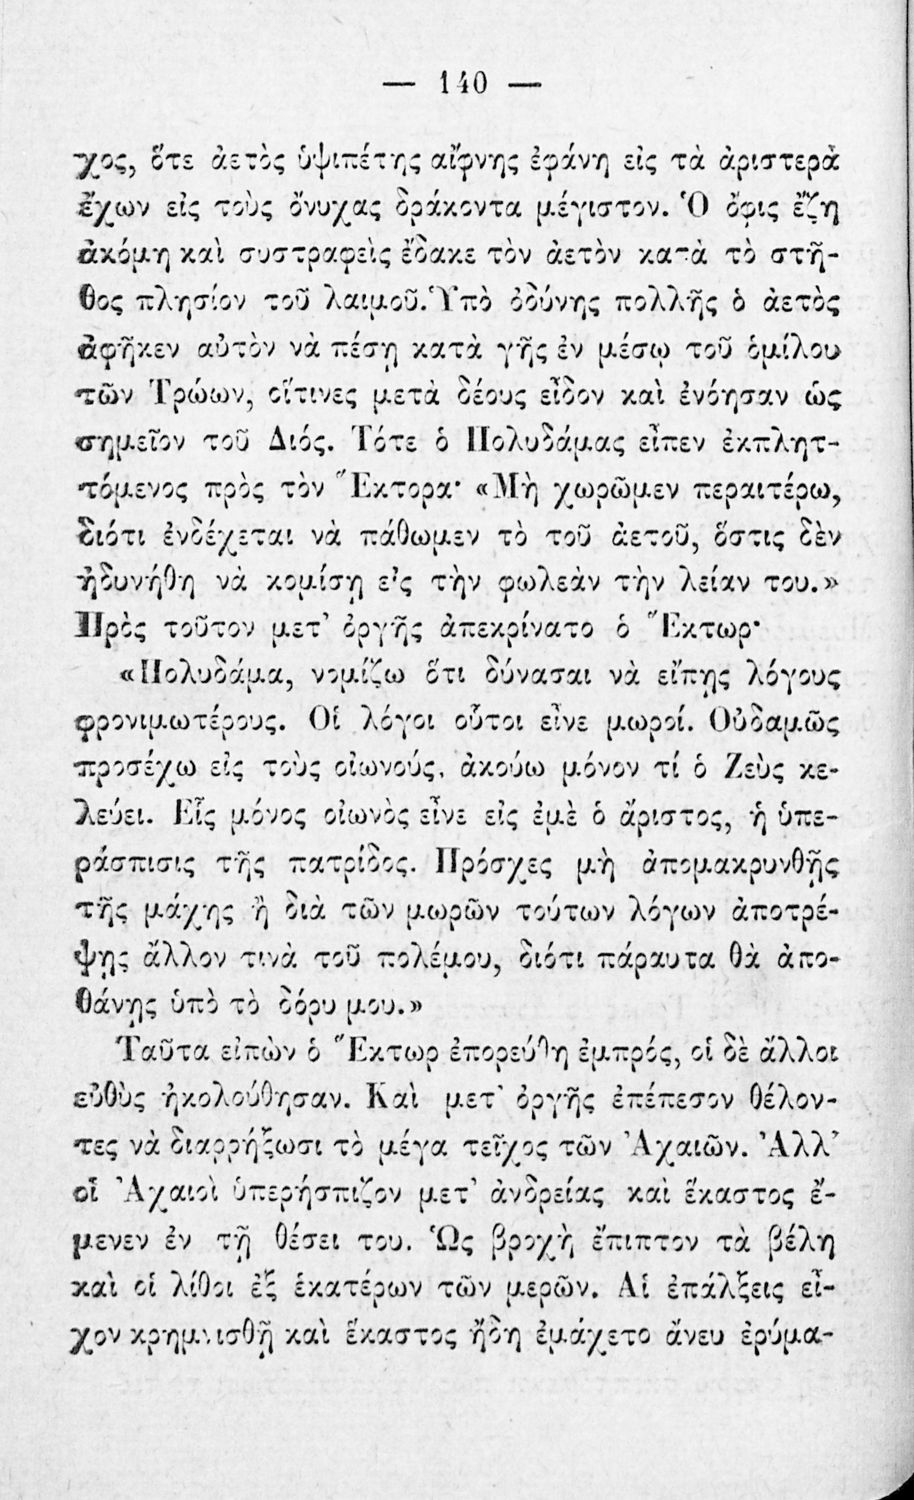 — 140 —
χος, ὅτε ἀετὸς ὑψιπέτης αἴφνης ἐφάνη εἰς τὰ ἀριστερὰ
ἔχων εἰς τοὺς ὄνυχας δράκοντα μέγιστον. Ὁ ὄφις ἔζη
ἀκόμη καὶ συστραφεὶς ἔδακε τὸν ἀετὸν κατὰ τὸ στῆ-
θος πλησίον τοῦ λαιμοῦ. Ὑπὸ ὀδύνης πολλῆς ὁ ἀετὸς
ἀφῆκεν αὐτὸν νὰ πέσῃ κατὰ γῆς ἐν μέσῳ τοῦ ὁμίλου
τῶν Τρώων, οἵτινες μετὰ δέους εἶδον καὶ ἐνόησαν ὡς
σημεῖον τοῦ Διός. Τότε ὁ Πολυδάμας εἶπεν ἐκπλητ-
τόμενος πρὸς τὸν Ἕκτορα· «Μὴ χωρῶμεν περαιτέρω,
διότι ἐνδέχεται νὰ πάθωμεν τὸ τοῦ ἀετοῦ, ὅστις δὲν
ἠδυνήθη νὰ κομίσῃ εἰς τὴν φωλεὰν τὴν λείαν του.»
Πρὸς τοῦτον μετ' ὀργῆς ἀπεκρίνατο ὁ Ἕκτωρ·
«Πολυδάμα, νομίζω ὅτι δύνασαι νὰ εἴπῃς λόγους
φρονιμωτέρους. Οἱ λόγοι οὗτοι εἶνε μωροί. Οὐδαμῶς
προσέχω εἰς τοὺς οἰωνούς, ἀκούω μόνον τί ὁ Ζεὺς κε-
λεύει. Εἷς μόνος οἰωνὸς εἶνε εἰς ἐμὲ ὁ ἄριστος, ἡ ὑπε-
ράσπισις τῆς πατρίδος. Πρόσχες μὴ ἀπομακρυνθῇς
τῆς μάχης ἢ διὰ τῶν μωρῶν τούτων λόγων ἀποτρέ-
ψῃς ἄλλον τινὰ τοῦ πολέμου, διότι πάραυτα θὰ ἀπο-
θάνῃς ὑπὸ τὸ δόρυ μου.»
Ταῦτα εἰπὼν ὁ Ἕκτωρ ἐπορεύθη ἐμπρός, οἱ δὲ ἄλλοι
εὐθὺς ἠκολούθησαν. Καὶ μετ' ὀργῆς ἐπέπεσον θέλον-
τες νὰ διαρρήξωσι τὸ μέγα τεῖχος τῶν Ἀχαιῶν. Ἀλλ'
οἱ Ἀχαιοὶ ὑπερήσπιζον μετ' ἀνδρείας καὶ ἕκαστος ἔ-
μενεν ἐν τῇ θέσει του. Ὡς βροχὴ ἔπιπτον τὰ βέλη
καὶ οἱ λίθοι ἐξ ἑκατέρων τῶν μερῶν. Αἱ ἐπάλξεις εἶ-
χον κρημνισθῇ καὶ ἕκαστος ἤδη ἐμάχετο ἄνευ ἐρύμα-